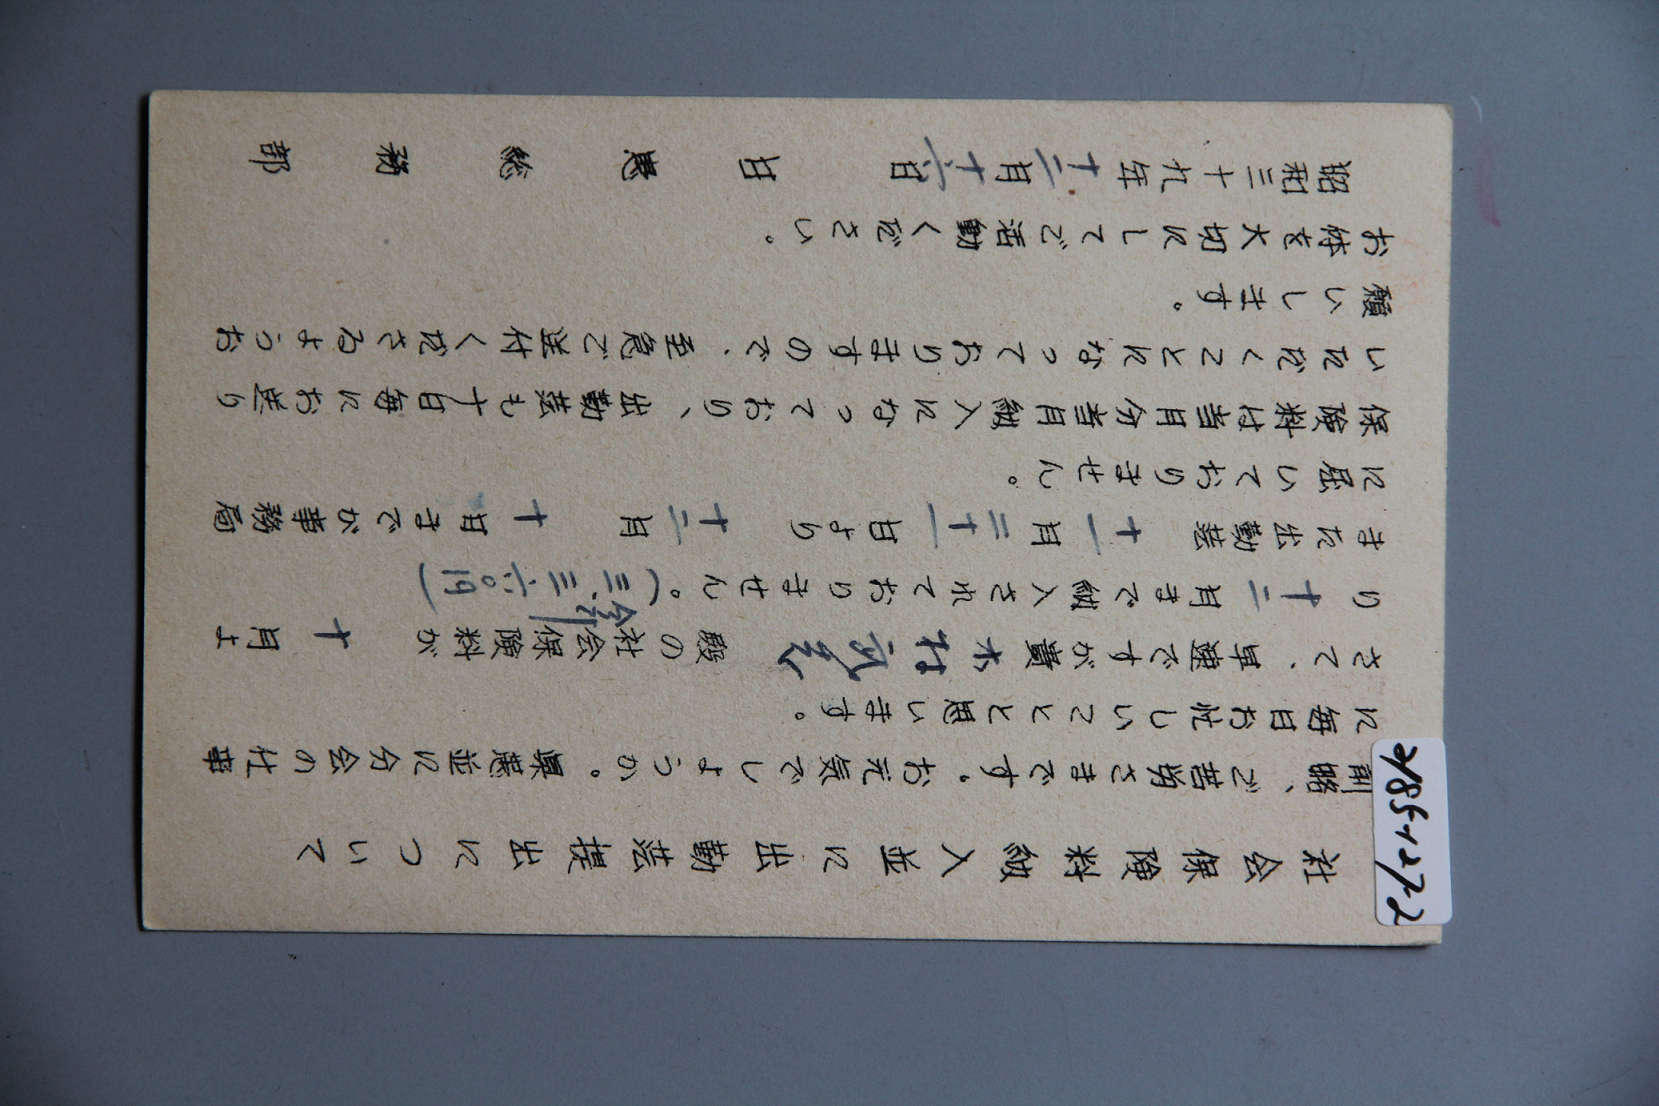 社会保険料納入並に出勤簿提出について
前略、ご苦労さまです。お元気でしょうか。県患並に分会の仕事
に毎日お忙しいことと思います。
さて、早速ですが貴 木村 殿の社会保険料が 十 月よ
り 十二 月まで納入されておりません。(三、三六〇円)
合計
また出勤簿 十一 月 二十一 日より 十二 月 十 日までが事務局
に届いておりません。
保険料は当月分当月納入になっており、出勤簿も十日毎にお送り
いただくことになっておりますので、至急ご送付くださるようお
願いします。
お体を大切にしてご活動ください。
昭和三十九年 十二 月 十六 日 日患総務部